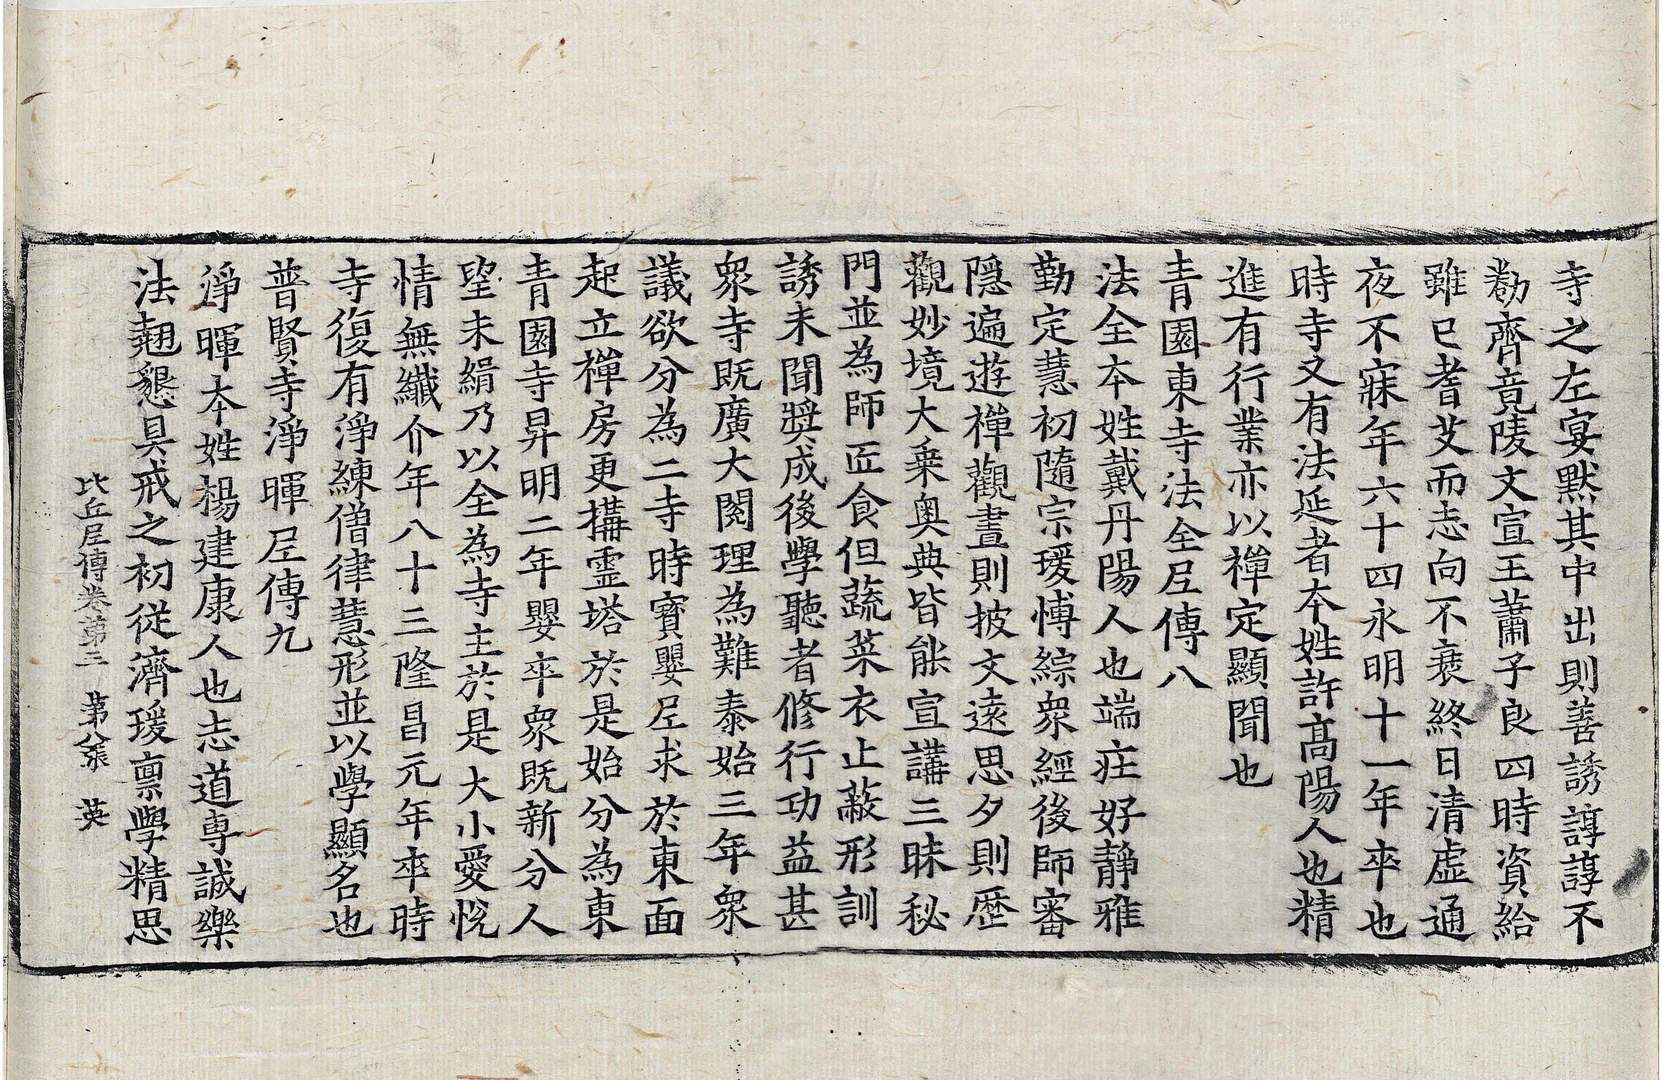 寺之左宴默其中出則善誘諄諄不
勸齊竟陵文宣王蕭子良四時資給
雖已耆艾而志向不衰終日清虛通
夜不寐年六十四永明十一年卒也
時寺又有法延者本姓許高陽人也精
進有行業亦以禪定顯聞也
青園東寺法全尼傳八
法全本姓戴丹陽人也端庄好靜雅
勤定慧初隨宗瑗愽綜衆經後師審
隱遍遊禪觀晝則披文遠思夕則歷
觀妙境大乗奥典皆能宣講三昧秘
門並為師匠食但蔬菜衣止蔽形訓
誘未聞奬成後學聽者修行功益甚
衆寺既廣大閱理為難泰始三年衆
議欲分為二寺時寳嬰尼求於東面
起立禪房更搆霊塔於是始分為東
青園寺昇明二年嬰卒衆既新分人
望未緝乃以全為寺主於是大小愛悅
情無纖介年八十三隆昌元年卒時
寺復有淨練僧律慧形並以學顯名也
普賢寺淨暉尼傳九
淨暉本姓楊建康人也志道專誠樂
法翹懇具戒之初從濟瑗稟學精思
比丘尼傳卷第三 第八張 英